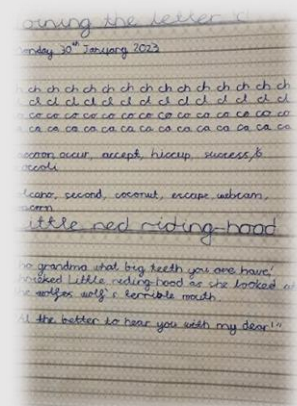 oining the letter c
onday 30th January 2023
ch ch ch ch ch ch ch ch ch ch ch ch ch
cl cl cl cl cl cl cl cl cl cl cl cl cl
co co co co co co co co co co co co
ca ca ca ca ca ca ca ca ca ca ca ca
occur, accept, hiccup, success,
occoli
lcano, second, coconut, escape, webcam,
acorn
ittle red riding-hood
grandma what big teeth you have,'
shrieked Little reding-hood as she looked at
wolf's terrible mouth.
ll the better to hear you with my dear!"